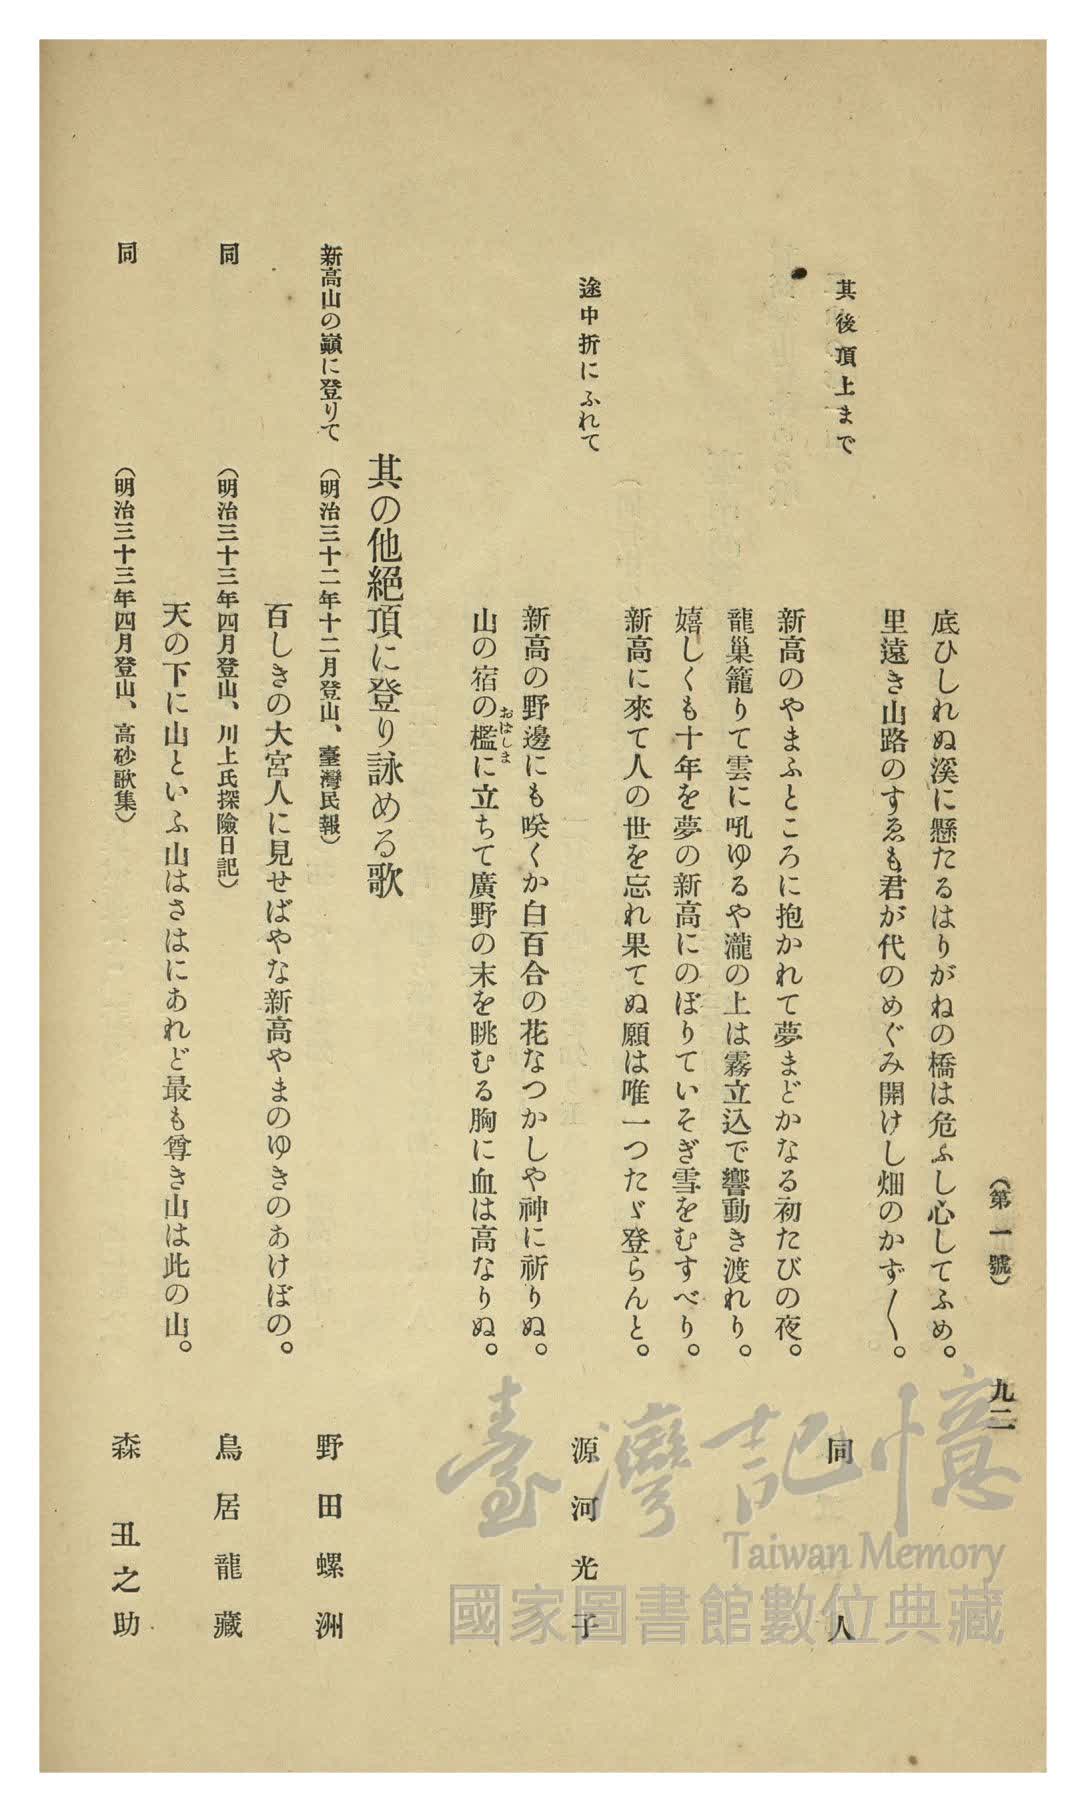 (第一號)　九二
底ひしれぬ溪に懸たるはりがねの橋は危ふし心してふめ。
里遠き山路のすゑも君が代のめぐみ開けし畑のかず〱。
其後頂上まで　同人
新高のやまふところに抱かれて夢まどかなる初たびの夜。
龍巢籠りて雲に吼ゆるや瀧の上は霧立込で響動き渡れり。
嬉しくも十年を夢の新高にのぼりていそぎ雪をむすべり。
新高に來て人の世を忘れ果てぬ願は唯一つたゞ登らんと。
途中折にふれて　源河光子
新高の野邊にも咲くか白百合の花なつかしや神に祈りぬ。
山の宿の檻に立ちて廣野の末を眺むる胸に血は高なりぬ。
おはしま
其の他絕頂に登り詠める歌
新高山の巓に登りて　(明治三十二年十二月登山、臺灣民報)　野田螺洲
百しきの大宮人に見せばやな新高やまのゆきのあけぼの。
同　(明治三十三年四月登山、川上氏探險日記)　鳥居龍藏
天の下に山といふ山はさはにあれど最も尊き山は此の山。
同　(明治三十三年四月登山、高砂歌集)　森丑之助
臺灣記憶
Taiwan Memory
國家圖書館數位典藏